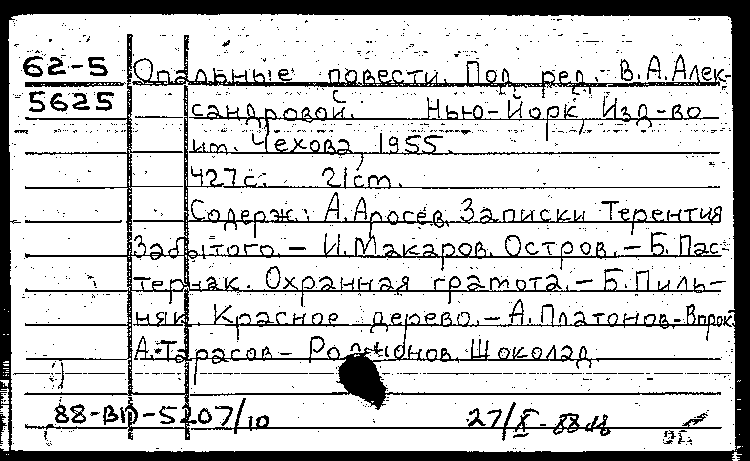 62-5 Опальные повести. Под ред. В.А.Алек-
5625 сандровой. Нью-Йорк, Изд-во
им. Чехова, 1955.
427с. 21cm.
Содерж.: А.Аросев. Записки Терентия
Забытого. — И.Макаров. Остров. — Б.Пас-
тернак. Охранная грамота. — Б.Пиль-
няк. Красное дерево. — А.Платонов. Впрок
А.Тарасов-Родионов. Шоколад.
88-ВП-5207/10 27/X-88